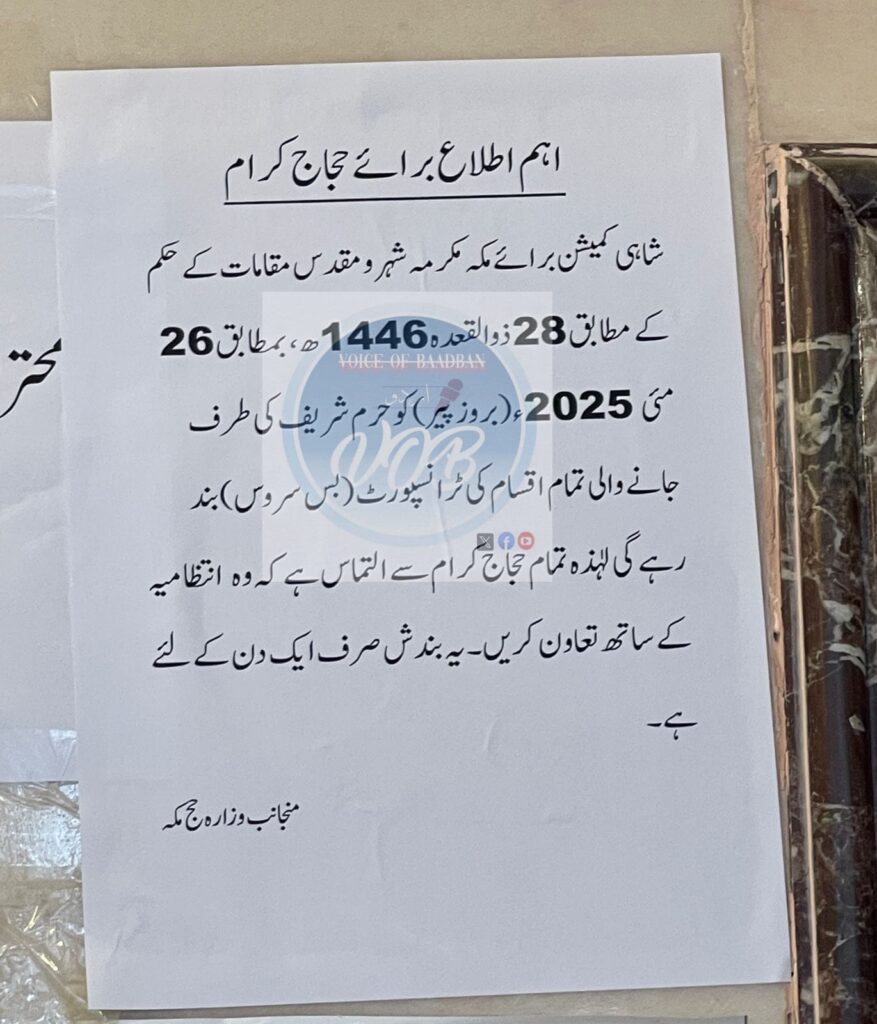 اہم اطلاع برائے حجاج کرام
شاہی کمیشن برائے مکہ مکرمہ شہر و مقدس مقامات کے حکم
کے مطابق 28 ذوالقعدہ 1446ھ، بمطابق 26
مئی 2025ء (بروز پیر) کو حرم شریف کی طرف
جانے والی تمام اقسام کی ٹرانسپورٹ (بس سروس) بند
رہے گی لہٰذہ تمام حجاج کرام سے التماس ہے کہ وہ انتظامیہ
کے ساتھ تعاون کریں۔ یہ بندش صرف ایک دن کے لئے
ہے۔
منجانب وزارہ حج مکہ
VOICE OF BAADBAN
VOB